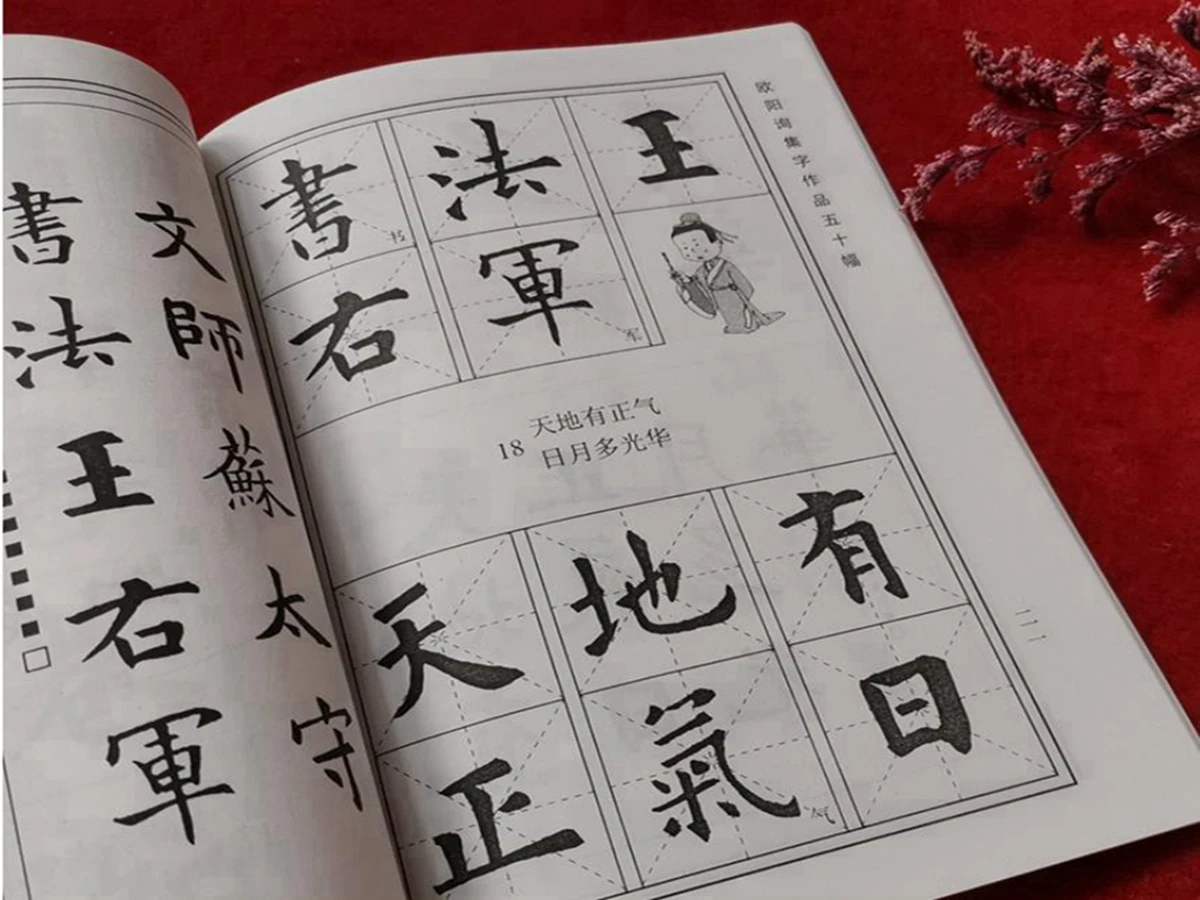 文師蘇太守
書法王右軍
欧阳询集字作品五十幅
書书法王
右軍军
18 天地有正气
日月多光华
天地有
正氣气日